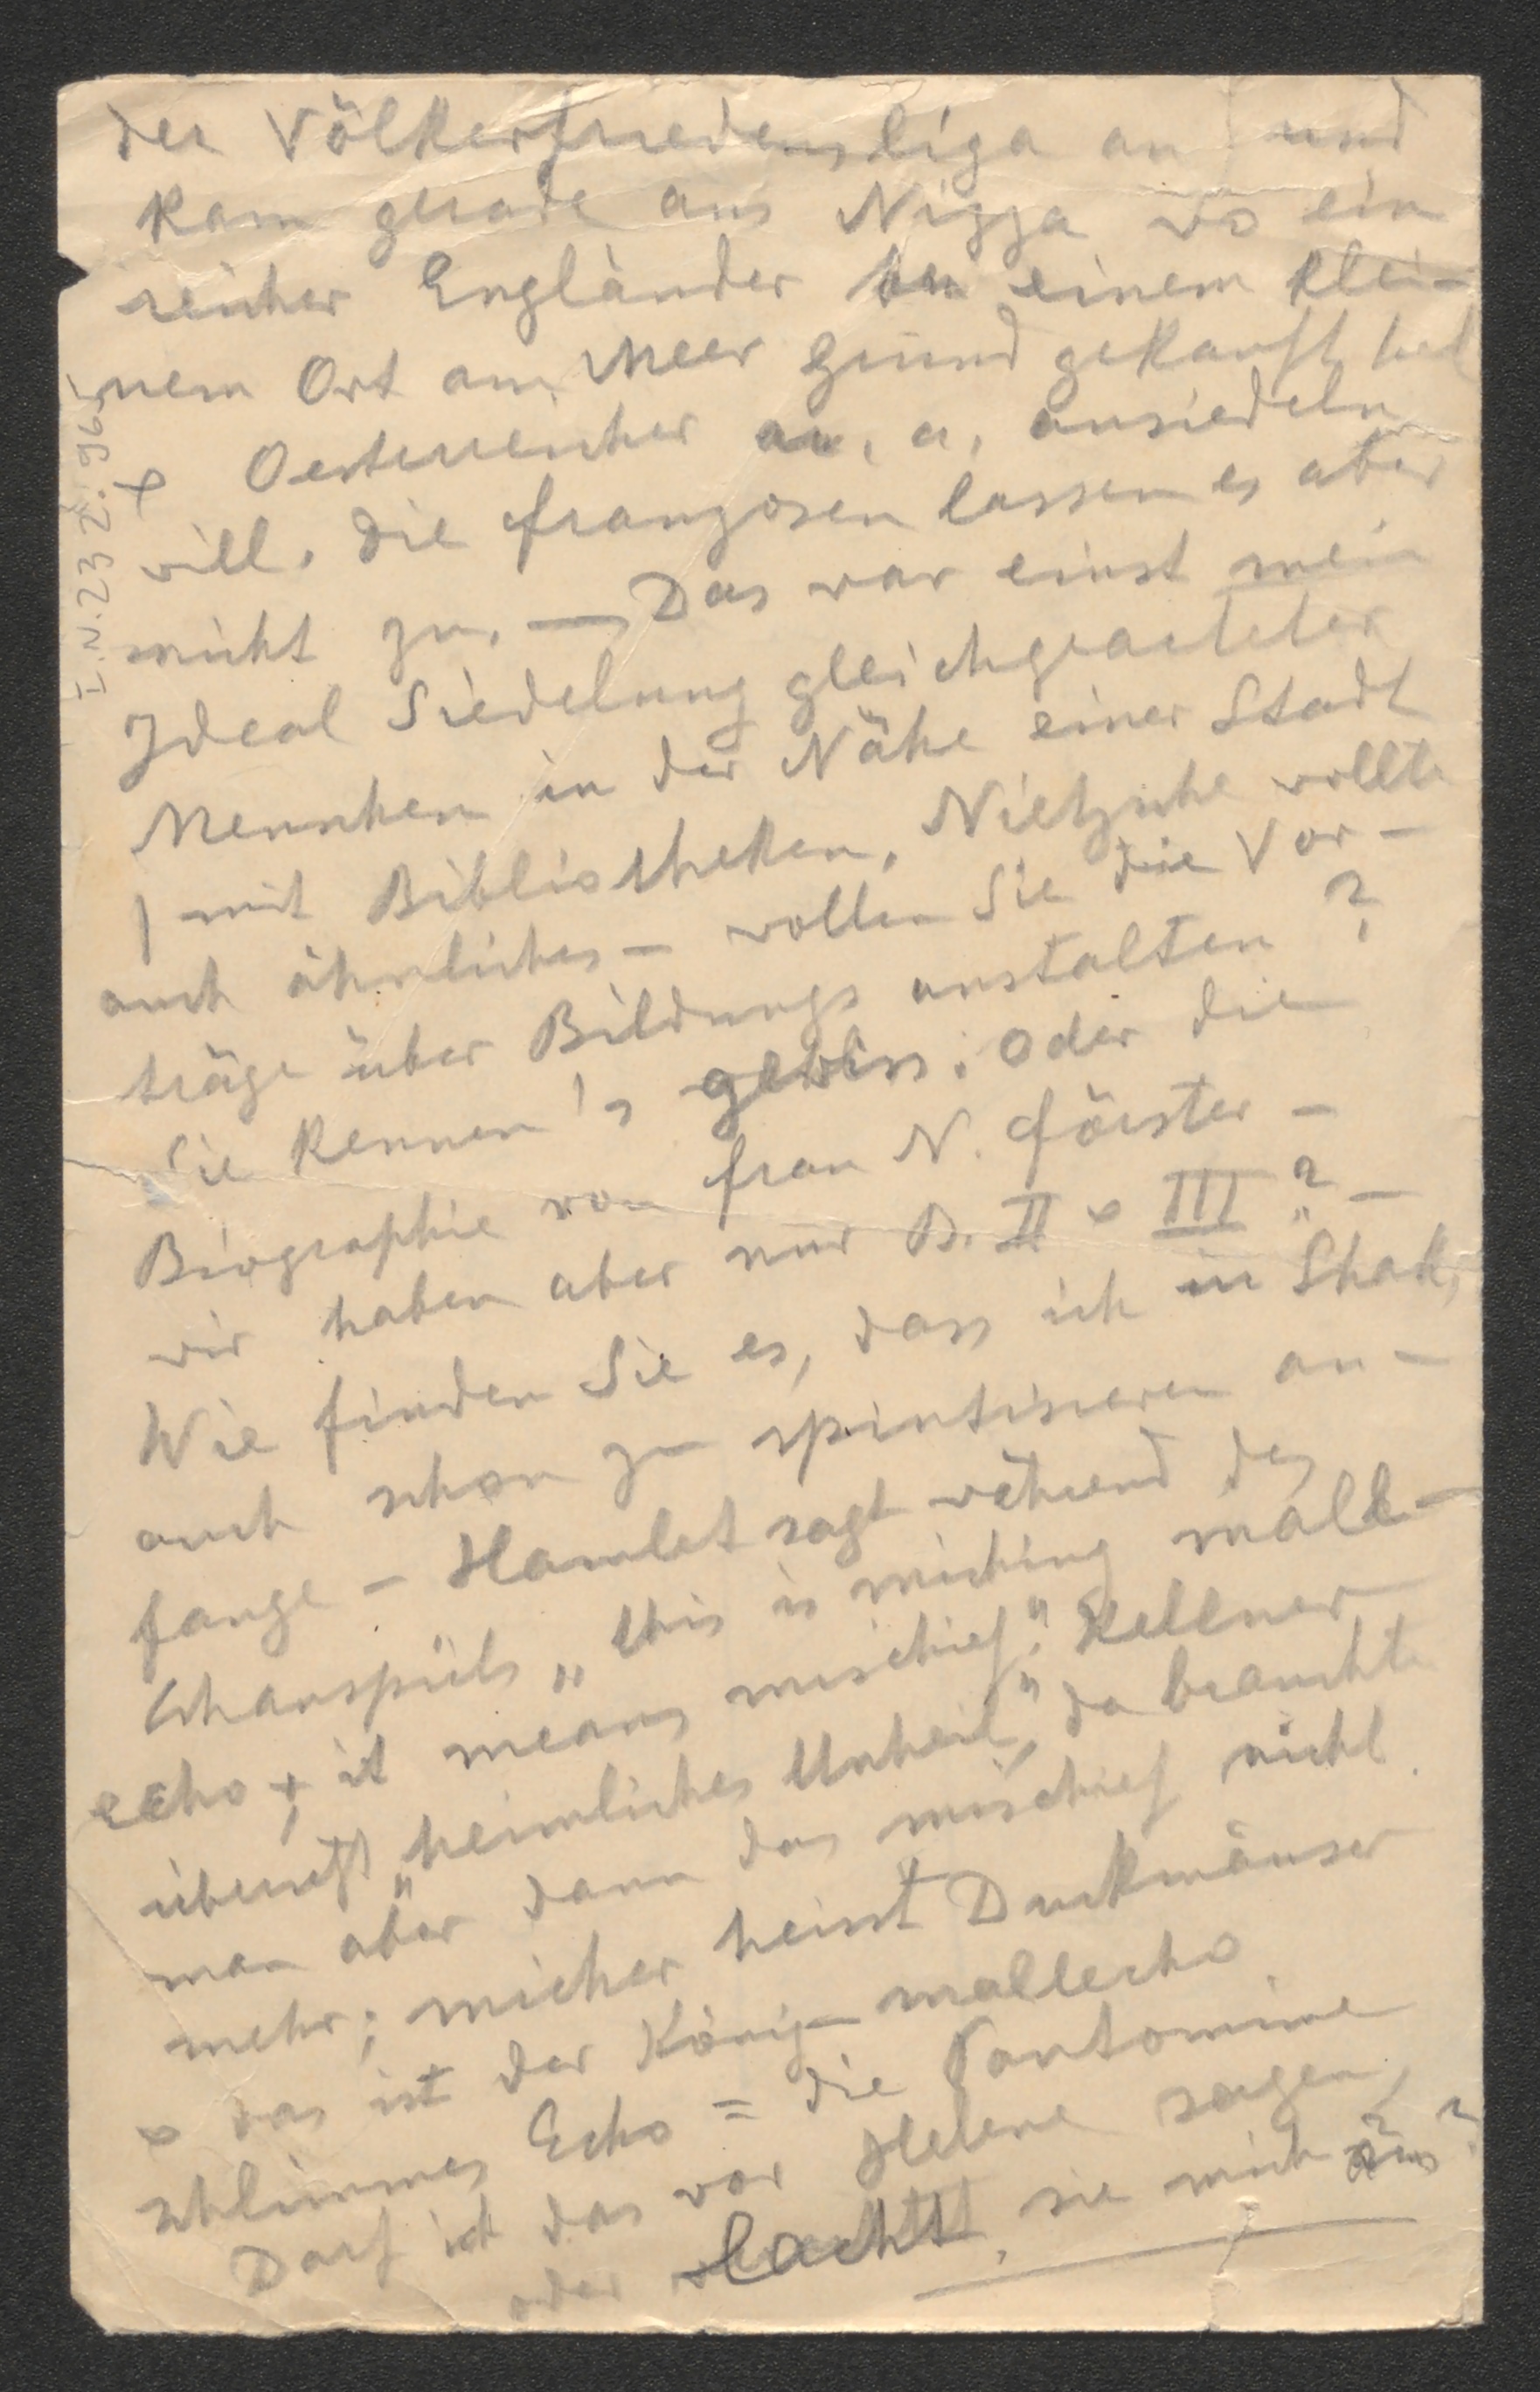 der Völkerfriedensliga an und
kam gerade aus Nizza wo ein
reicher Engländer bei einem klei-
nem Ort am Meer Grund gekauft hat
& Oesterreicher u. a. ansiedeln
will. Die Franzosen lassen es aber
nicht zu. — Das war einst mein
Ideal Siedelung gleichgearteter
Menschen in der Nähe einer Stadt
mit Bibliotheken. Nietzsche wollte
auch ähnliches — wollen Sie die Vor-
träge über Bildungsanstalten?
Sie kennen's gewiss. Oder die
Biographie von Frau N. Förster —
wir haben aber nur B. II & III? —
Wie finden Sie es, dass ich in Shak.
auch schon zu spintisieren an-
fange — Hamlet sagt während des
Schauspiels „this is miching mall-
echo, it means mischief." Kellner
übersetzt „heimliches Unheil", da brauchte
man aber dann das mischief nicht
mehr; micher heisst Duckmäuser
& das ist der König — mallecho
schlimmes Echo = die Pantomime.
Darf ich das vor Helene sagen,
oder lacht sie mich aus?
I.N. 232.965